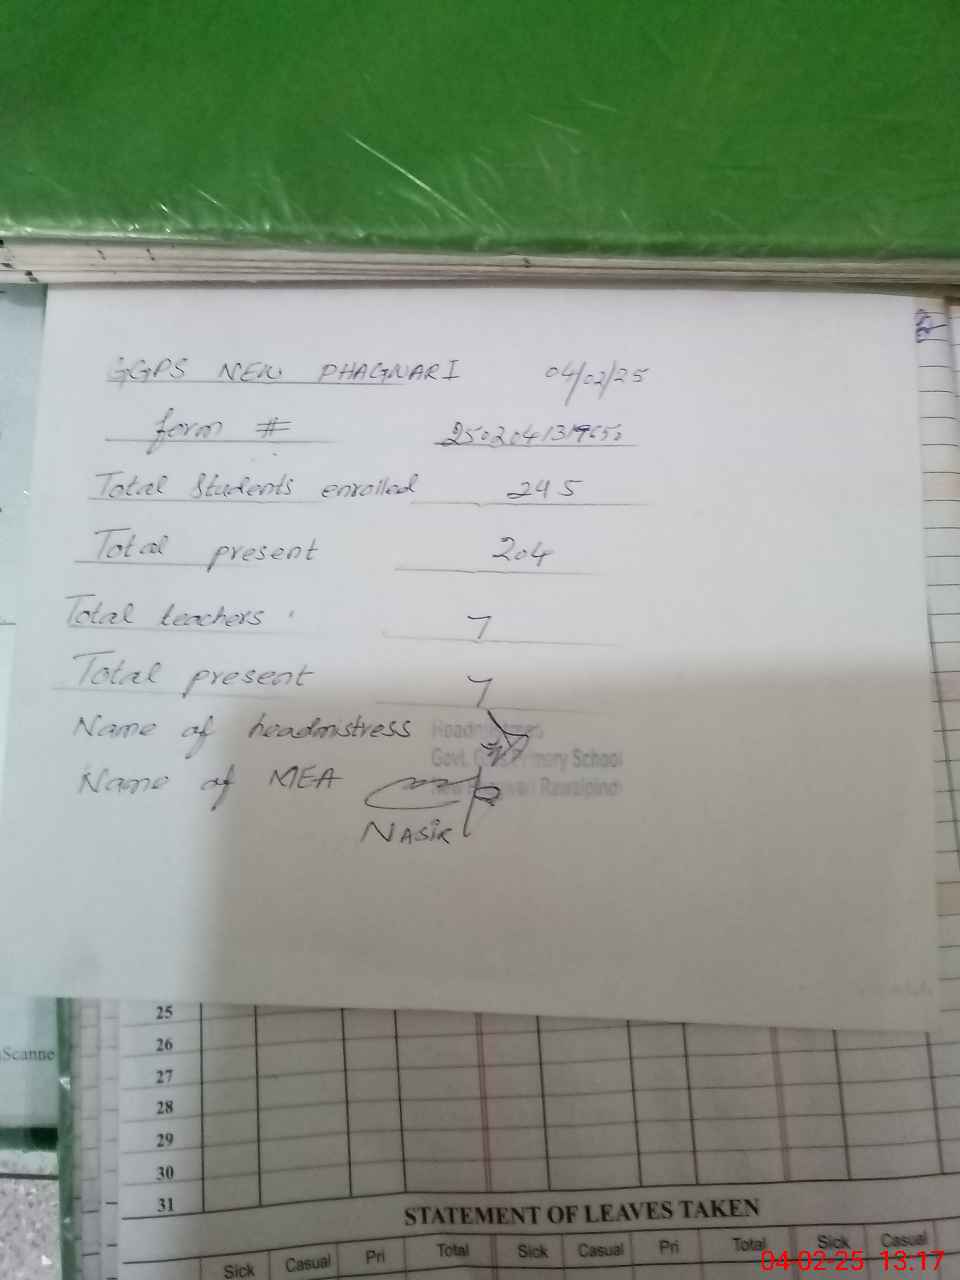 GGPS NEW PHAGWARI 04/02/25
form #
Total Students enrolled 245
Total present 204
Total teachers 7
Total present 7
Name of headmistress
Headmistress
Govt. Girls Primary School
Name of MEA
Rawalpindi
NASIR
Scanne
25
26
27
28
29
30
31
STATEMENT OF LEAVES TAKEN
Sick Casual Pri Total Sick Casual Pri Total Sick Casual
04-02-25 13.17